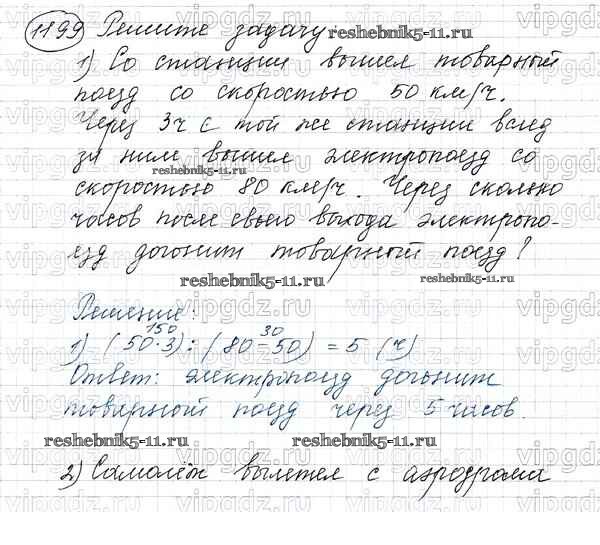 1199 Решите задачу
reshebnik5-11.ru
1) Со станции вышел товарный
поезд со скоростью 50 км/ч.
Через 3ч с той же станции вслед
за ним вышел электропоезд со
reshebnik5-11.ru
скоростью 80 км/ч. Через сколько
часов после своего выхода электропо-
езд догонит товарный поезд?
reshebnik5-11.ru
reshebnik5-11.ru
Решение:
150 30
1) (50·3):(80-50) = 5 (ч)
Ответ: электропоезд догонит
товарный поезд через 5 часов.
reshebnik5-11.ru reshebnik5-11.ru
2) Самолёт вылетел с аэродрома
vipgdz.com